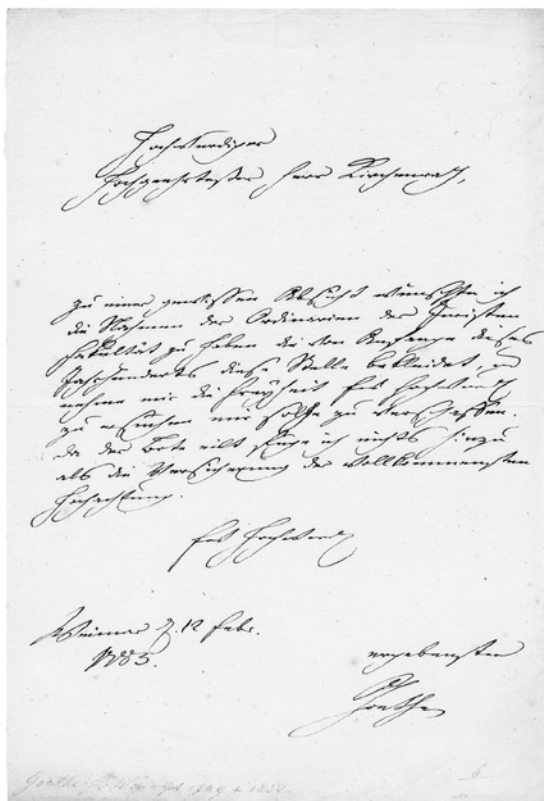 Hochwürdiger
Hochgeehrtester Herr Kirchenrath,
Zu einer gewissen Absicht wünschte ich
die Nahmen der Ordinarien der Juristen
Fakultät zu haben die von Anfange dieses
Jahrhunderts diese Stelle bekleidet, und
nehme mir die Freyheit Ew Hochwürd
zu ersuchen mir solche zu verschaffen.
da der Bote eilt füge ich nichts hinzu
als die Versicherung der vollkommensten
Hochachtung.
Ew Hochwürd
Weimar d. 12 Febr.
1785.
ergebenster
Goethe
6